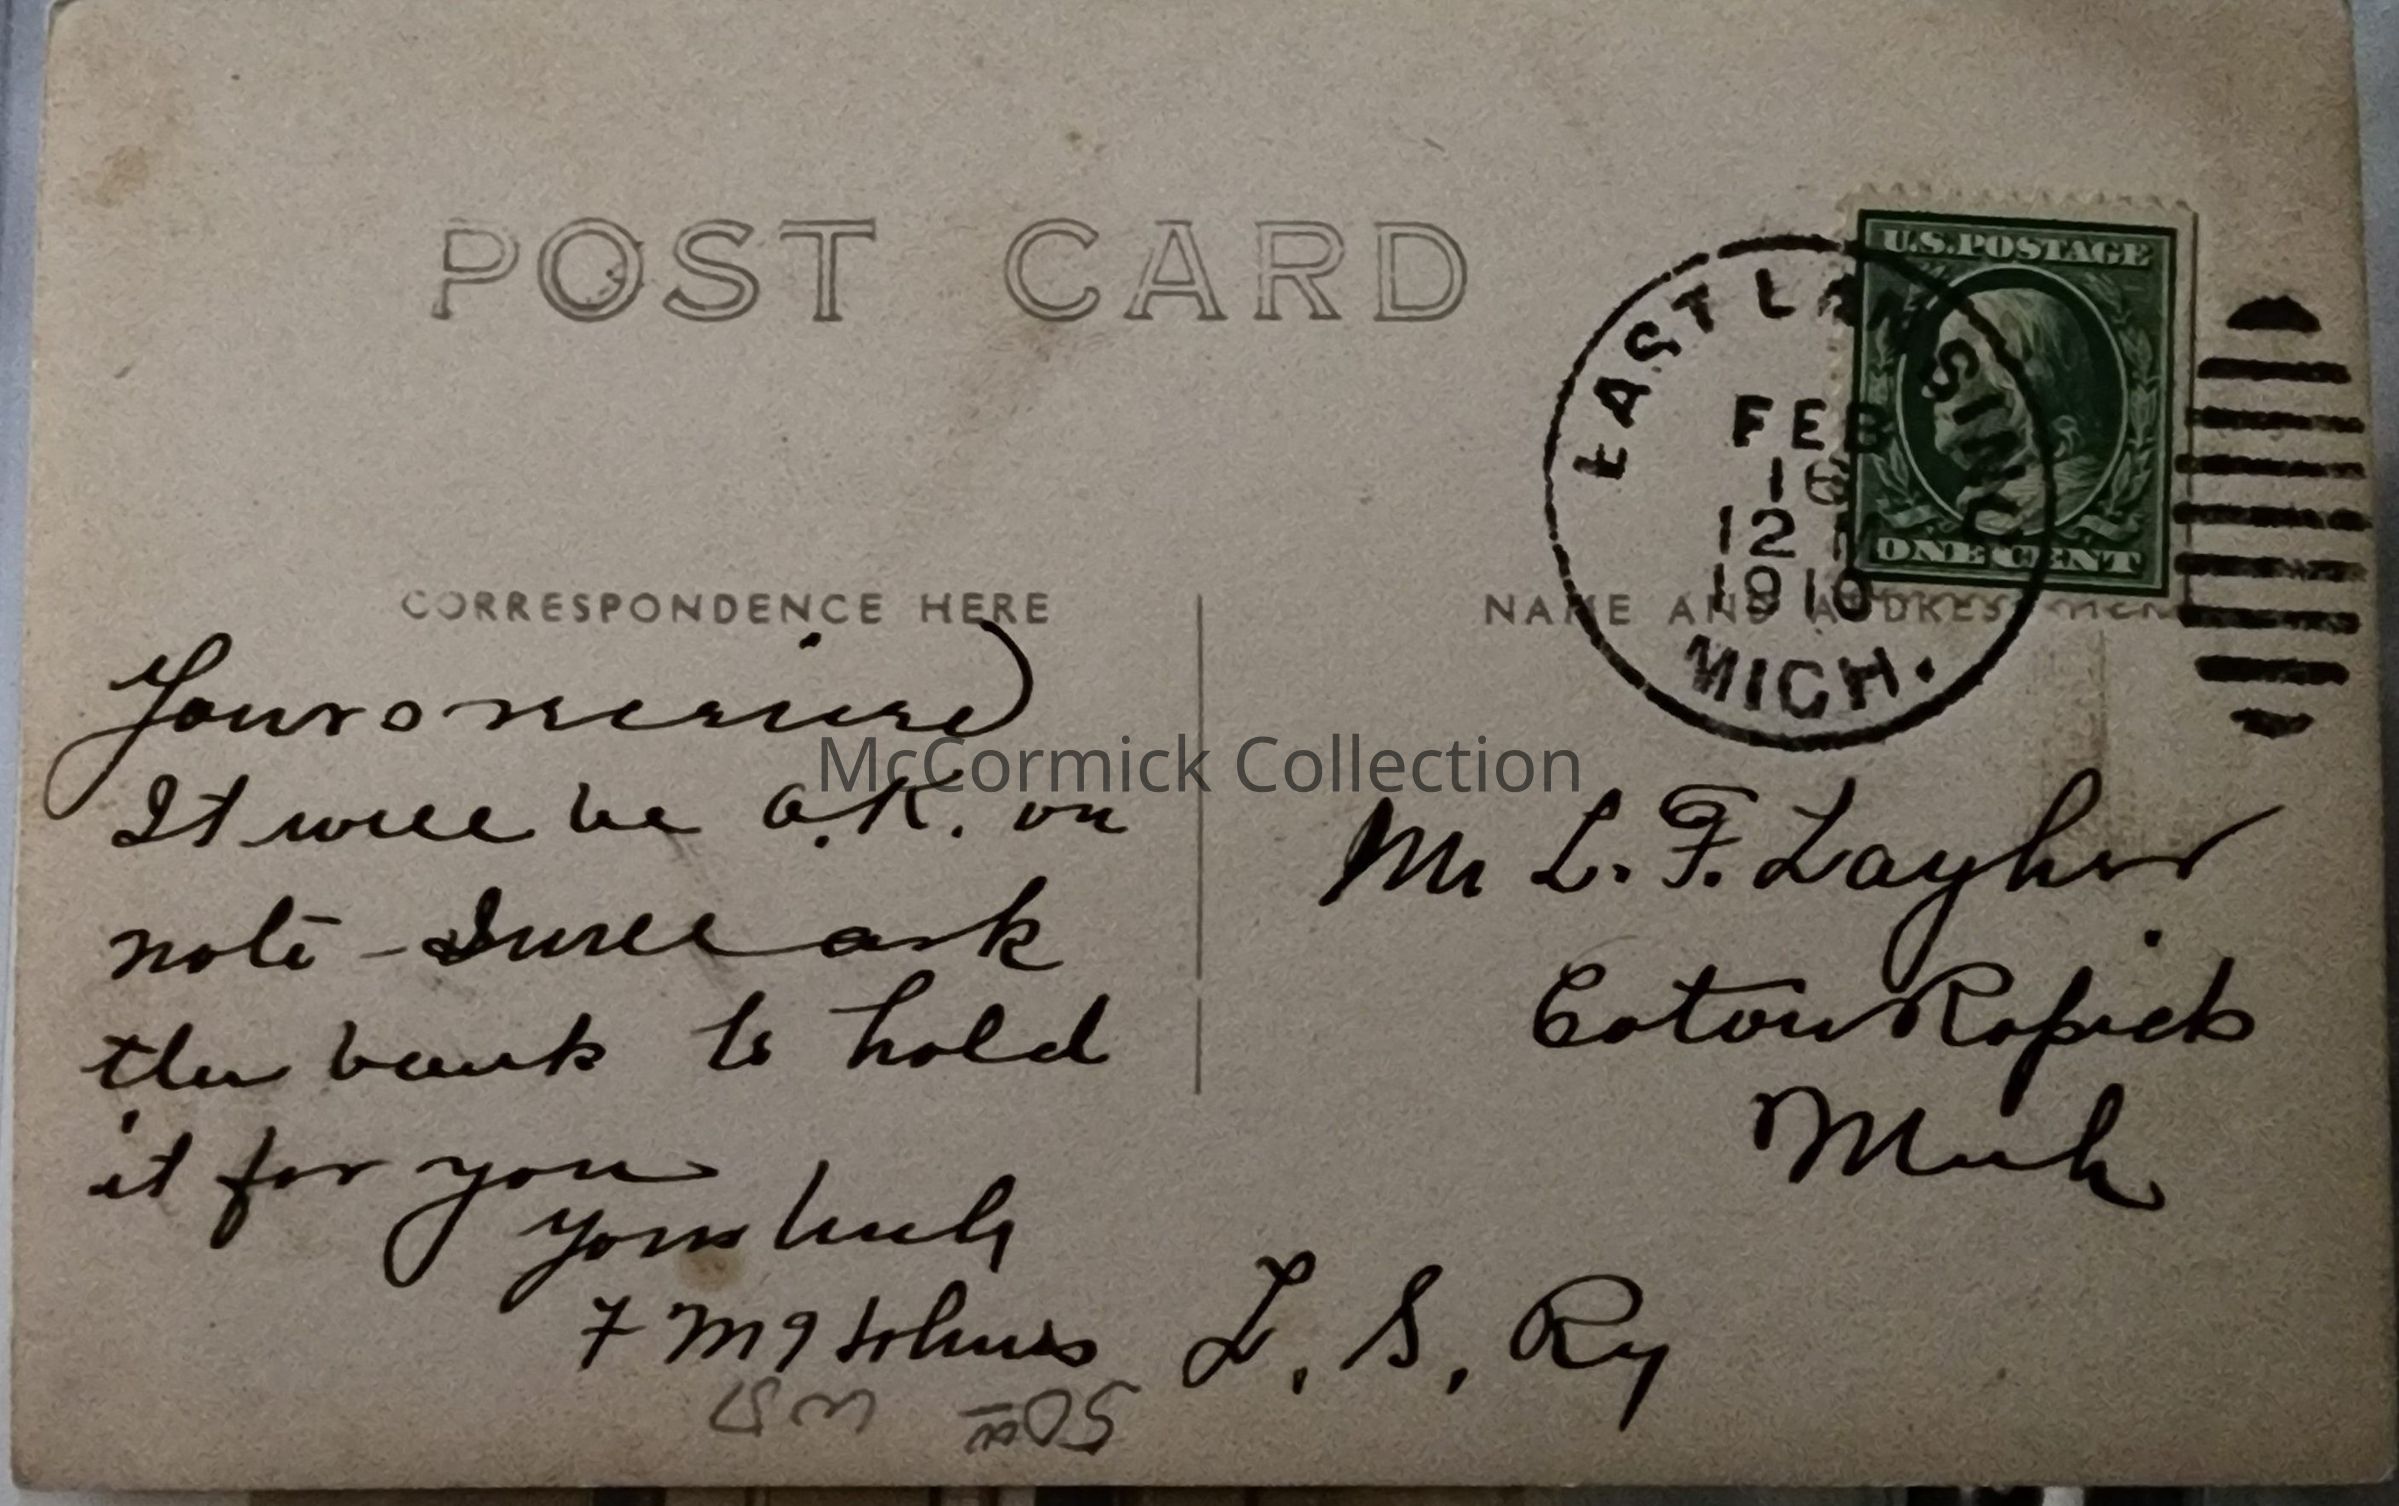 POST CARD
U.S.POSTAGE
ONE CENT
EAST LANSING
FEB
16
12 M
1910
MICH.
CORRESPONDENCE HERE
NAME AND ADDRESS HERE
Yours received
It will be O.K. on
note - I will ask
the bank to hold
it for you
Yours truly
F M
McCormick Collection
Mr L. F. Layher
Eaton Rapids
Mich
L. S. Ry
50